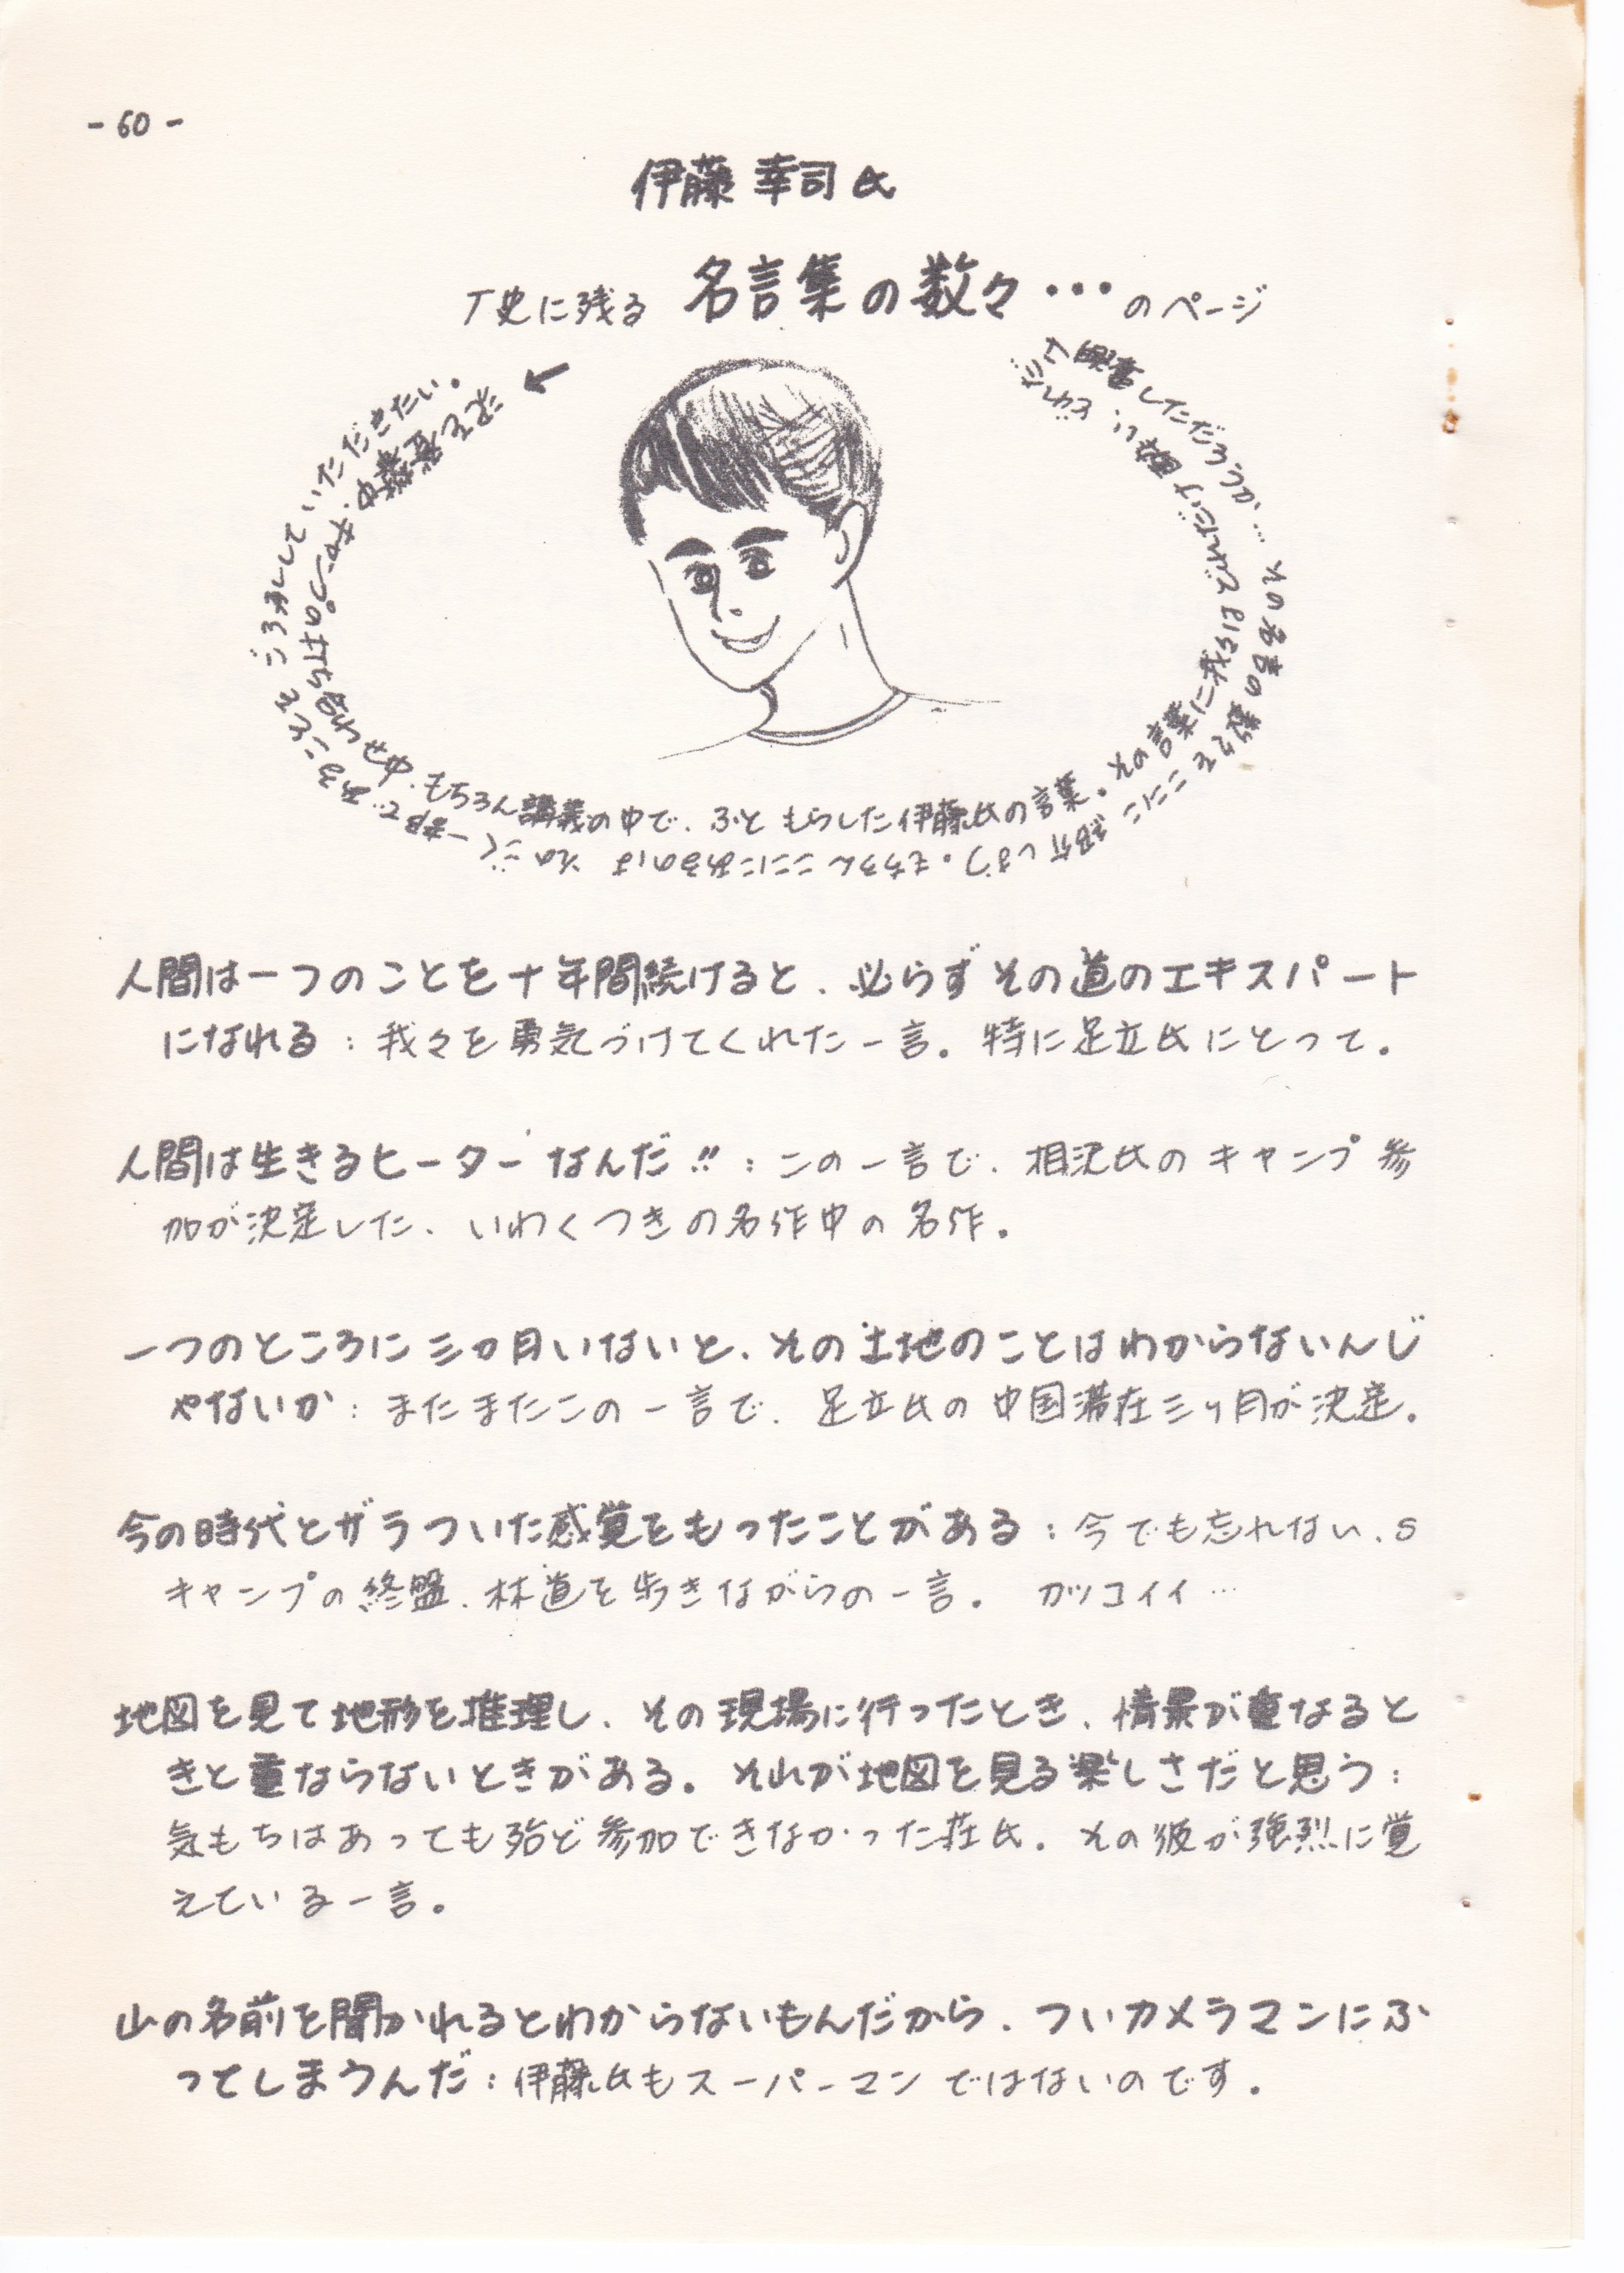 - 60 -
伊藤 幸司 氏
T史に残る 名言集の数々・・・のページ
沢を登攀中、キャンプの打ち合わせ中、もちろん講義の中で、ふともらした伊藤氏の言葉。その言葉に我々はどれだけ酔い、どれだ
け興奮しただろうか…その名言の数々をここに紹介しよう。もちろんここにあるのはそのごく一部であることをご承知していただきたい。
人間は一つのことを十年間続けると、必らずその道のエキスパート
になれる：我々を勇気づけてくれた一言。特に足立氏にとって。
人間は生きるヒーターなんだ!!：この一言で、相沢氏のキャンプ参
加が決定した、いわくつきの名作中の名作。
一つのところに三カ月いないと、その土地のことはわからないんじ
ゃないか：またまたこの一言で、足立氏の中国滞在三ヶ月が決定。
今の時代とザラついた感覚をもったことがある：今でも忘れない、S
キャンプの終盤、林道を歩きながらの一言。 カッコイイ…
地図を見て地形を推理し、その現場に行ったとき、情景が重なると
きと重ならないときがある。それが地図を見る楽しさだと思う：
気もちはあっても殆ど参加できなかった荘氏。その彼が強烈に覚
えている一言。
山の名前を聞かれるとわからないもんだから、ついカメラマンにふ
ってしまうんだ：伊藤氏もスーパーマンではないのです。